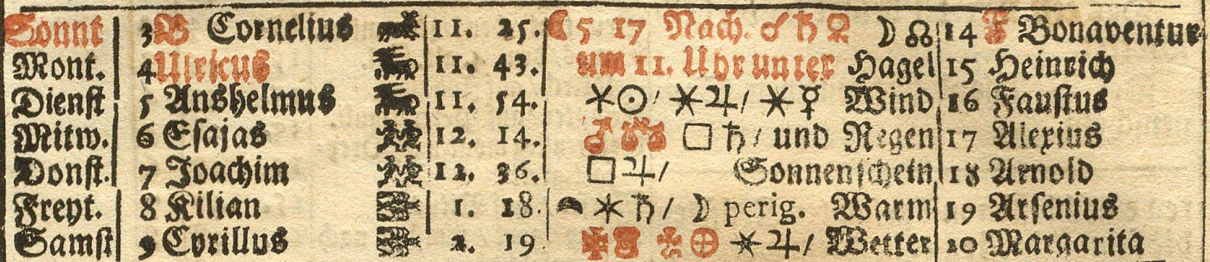 Sonnt 3 B Cornelius 11. 25. ☾ 5 17 Nach. ☌ ♄ ♀ ☽ ☊ 14 F Bonaventur
Mont. 4 Ulricus 11. 43. um 11. Uhr unter Hagel 15 Heinrich
Dienst 5 Anshelmus 11. 54. ⚹ ☉ / ⚹ ♃ / ⚹ ☿ Wind 16 Faustus
Mitw. 6 Esajas 12. 14. □ ♄ / und Regen 17 Alexius
Donst. 7 Joachim 12. 36. □ ♃ / Sonnenschein 18 Arnold
Freyt. 8 Kilian 1. 18. ⚹ ♄ / ☽ perig. Warm 19 Arsenius
Samst 9 Cyrillus 2. 19 ⚹ ♃ / Wetter 20 Margarita